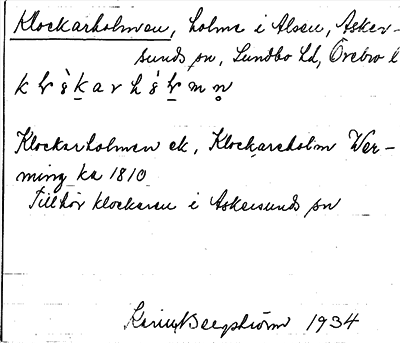 Klockarholmen, holme i Alsen, Asker-
sunds sn, Sundbo hd, Örebro l
Klockarholmen ek, Klockareholm Wer-
ming ka 1810
Tillhör klockaren i Askersunds sn
Karin Bergström 1934